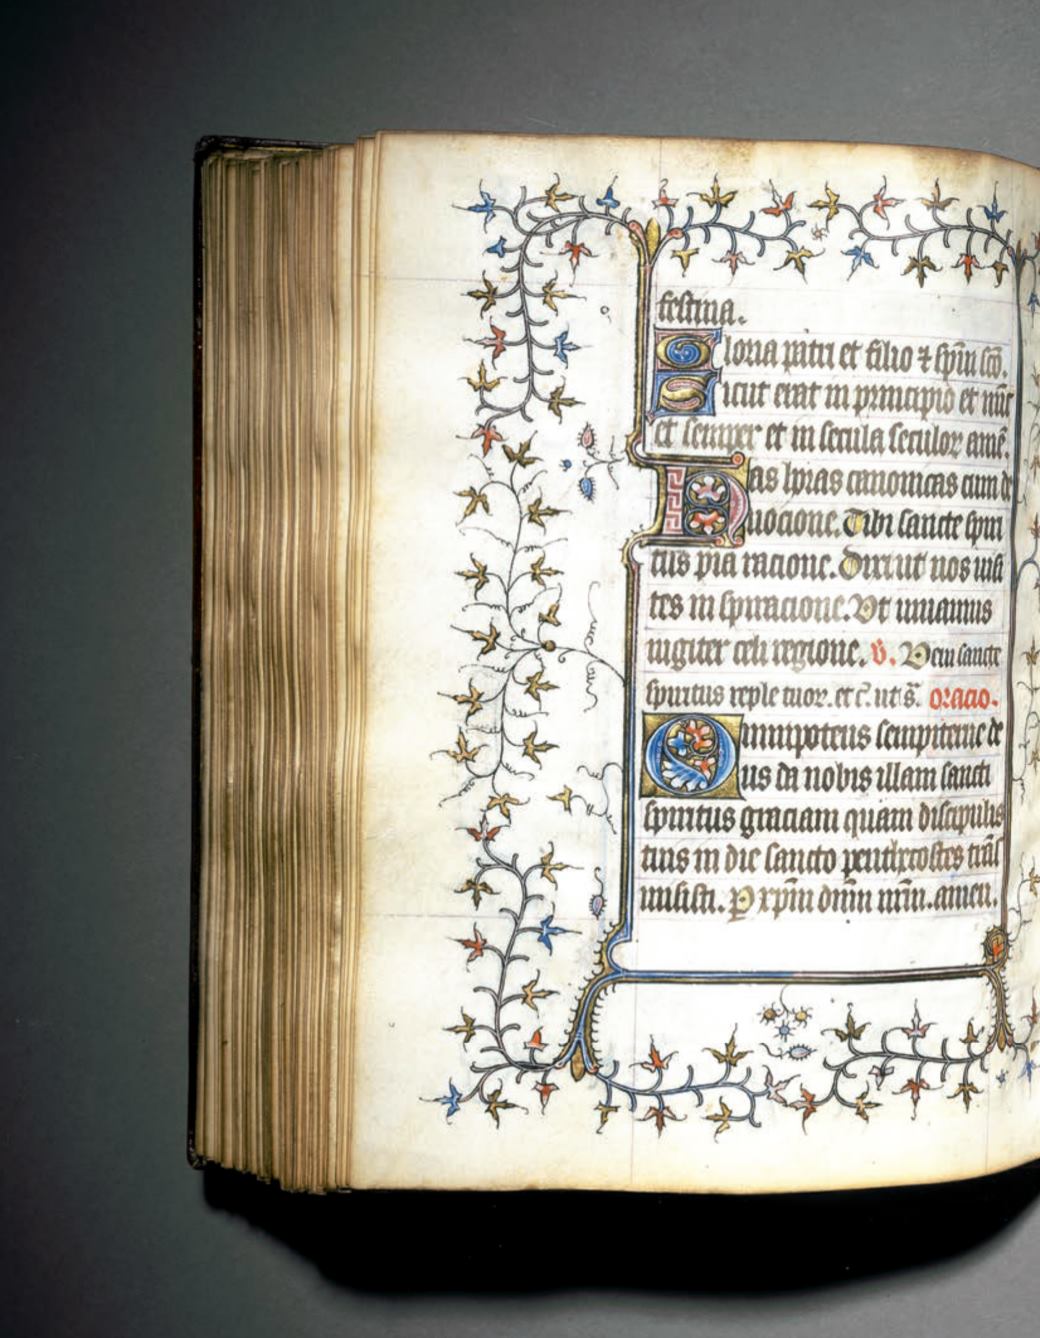 festina.
Gloria patri et filio ⁊ sp̄iu sc̄o.
Sicut erat in principio et nūc
et semper et in secula seculoꝝ amē.
Has horas canonicas cum de
uocione. Tibi sancte spiri
tus pia racione. Dixi ut nos uisi
tes inspiracione. Vt uiuamus
iugiter celi regione. v̄. Veni sancte
spiritus reple tuoꝝ. etc̄. ut s̄. oracio.
Omnipotens sempiterne de
us da nobis illam sancti
spiritus graciam quam discipulis
tuis in die sancto penthecostes trās
misisti. P xp̄m dn̄m nr̄m. amen.